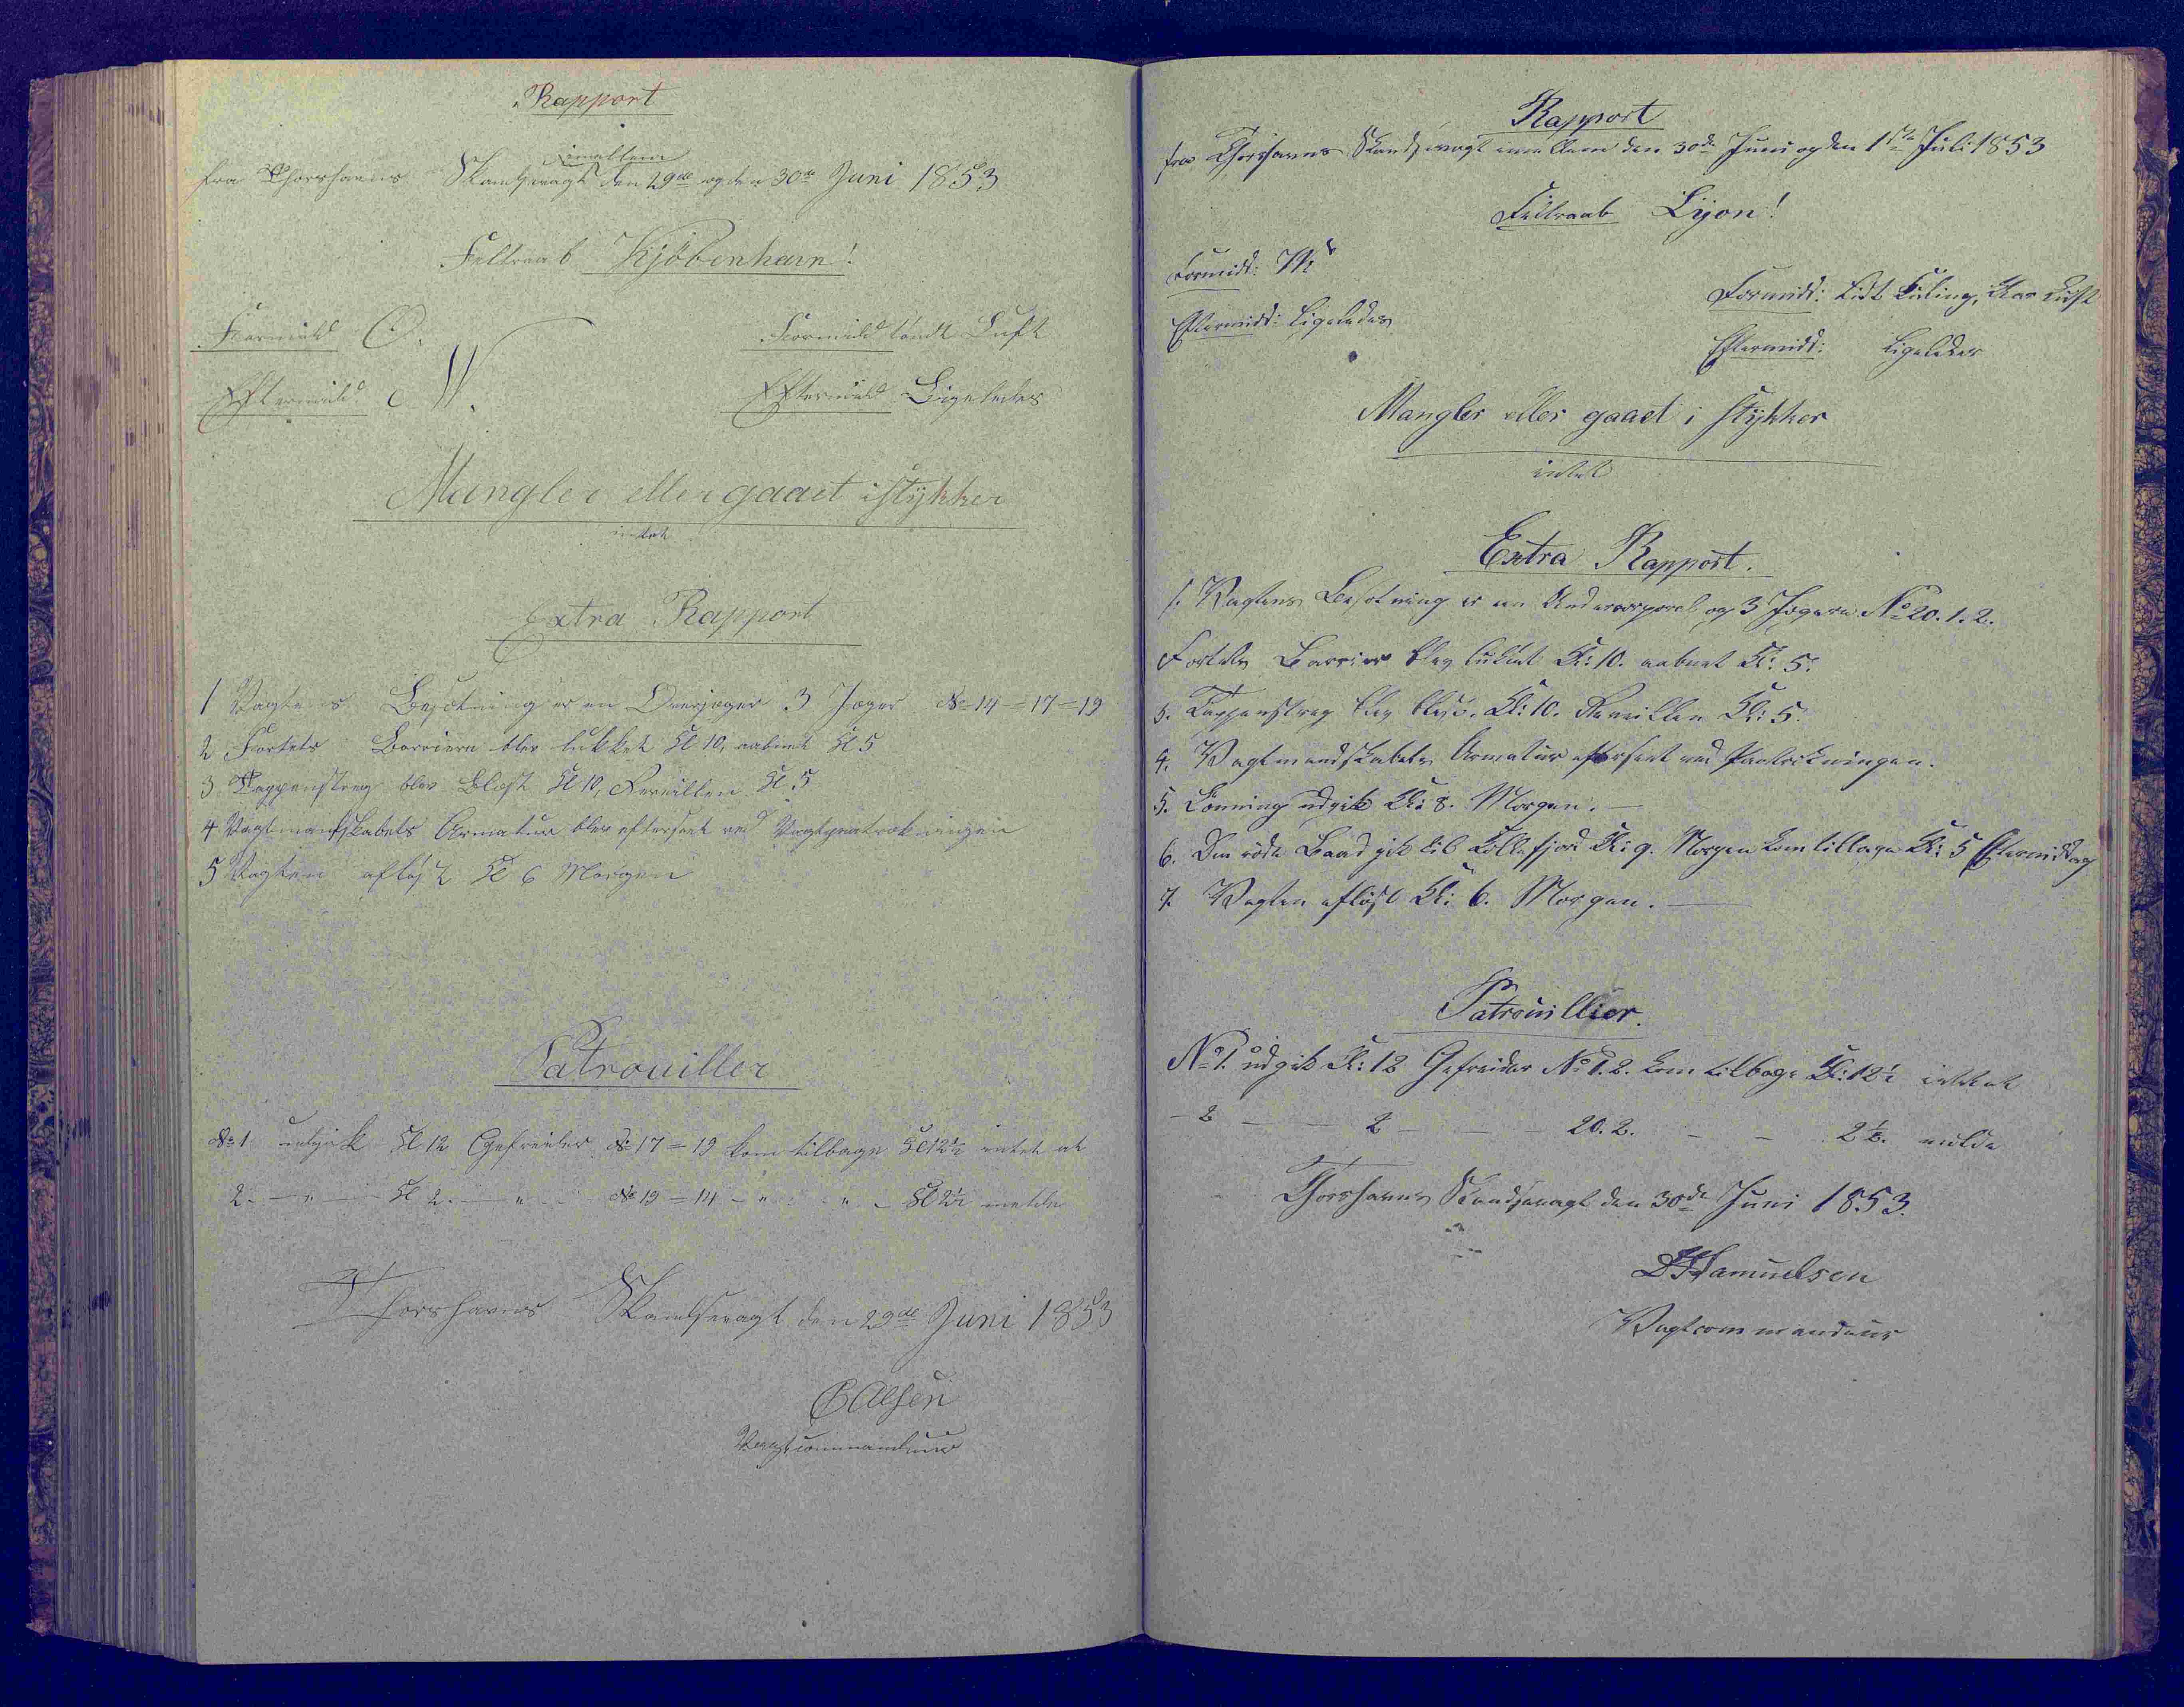 Rapport
imellem
fra Thorshavns Skandsevagt den 29de og den 30te Juni 1853
Feltraab Kjöbenhavn!
Formidd O.
Formidd tÿndt Luft
Eftermidd N.
Eftermidd Ligeledes
Mangler eller gaaet istÿkker
intet
Extra Rapport
1 Vagtens Besætning er en Overjæger 3 Jæger No 14 = 17 = 19
2 Fortets Barriere blev lukket Kl 10, aabnet Kl 5
3 Tappenstreg blev Blæst Kl 10, Reveillen Kl 5
4 Vagtmandskabets Armatur blev efterseet ved Vagtparatrækningen
5 Vagten aflöst Kl 6 Morgen
Patrouiller
No 1 udgik Kl 12 Gefreider No 17 = 19 kom tilbage Kl 12½ intet at
2 – " – Kl 2 – " – No 19 = 14 – " – " – Kl 2½ melde
Thorshavns Skandsevagt den 29de Juni 1853
Olsen
Vagtcommandeur
Rapport
fra Thorshavns Skandsevagt imellem den 30de Juni og den 1ste Juli 1853
Feltraab Lÿon!
Formidd:
Formidd: Lidt Kuling, klar Luft
Eftermidd: Ligeledes
Eftermidd: Ligeledes
Mangler eller gaaet i stÿkker
intet
Extra Rapport.
1. Vagtens Besætning er en Undercorporal og 3 Jægere No 20. 1. 2.
Fortets Barriere blev lukket Kl: 10. aabnet Kl: 5.
3. Tappenstreg blev blæst. Kl: 10. Reveillen Kl: 5.
4. Vagtmandskabets Armatur efterseet ved Paratrækningen.
5. Lönning udgik Kl: 8. Morgen. —
6. Den röde Baad gik til Kollefjord Kl: 9. Morgen kom tilbage Kl: 5 Eftermiddag
7. Vagten aflöst Kl: 6. Morgen. —
Patrouiller.
No 1. udgik Kl: 12 Gefreider No 1. 2. kom tilbage Kl: 12½ intet at
– 2 – – 2 – – 20. 2. – – 2½. melde
Thorshavns Skandsevagt den 30de Juni 1853.
Samuelsen
Vagtcommandeur